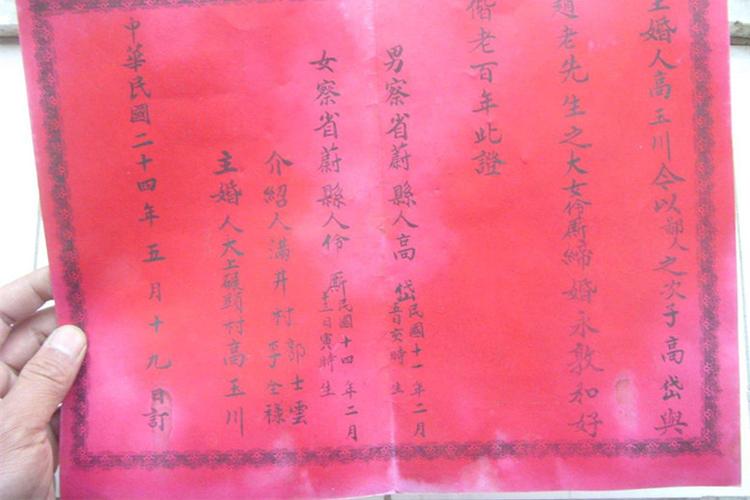 主婚人高玉川今以鄙人之次子高岱與
趙老先生之大女伶斋締婚永敦和好
偕老百年此證
男察省蔚縣人高岱民國十一年二月
亥時生
女察省蔚縣人伶民國十四年二月
日寅時生
介紹人滿井村郭士雲
李全祿
主婚人大上碾頭村高玉川
中華民國二十四年五月十九日訂